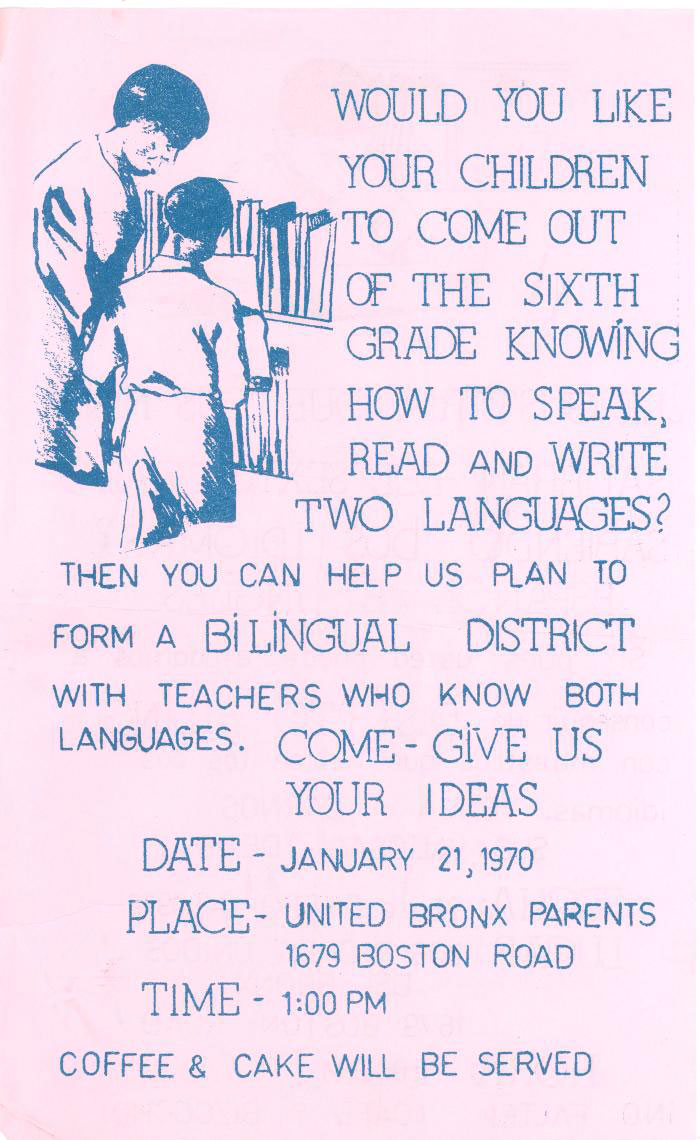 WOULD YOU LIKE
YOUR CHILDREN
TO COME OUT
OF THE SIXTH
GRADE KNOWING
HOW TO SPEAK,
READ AND WRITE
TWO LANGUAGES?
THEN YOU CAN HELP US PLAN TO
FORM A BILINGUAL DISTRICT
WITH TEACHERS WHO KNOW BOTH
LANGUAGES. COME-GIVE US
YOUR IDEAS
DATE - JANUARY 21, 1970
PLACE- UNITED BRONX PARENTS
1679 BOSTON ROAD
TIME - 1:00 PM
COFFEE & CAKE WILL BE SERVED